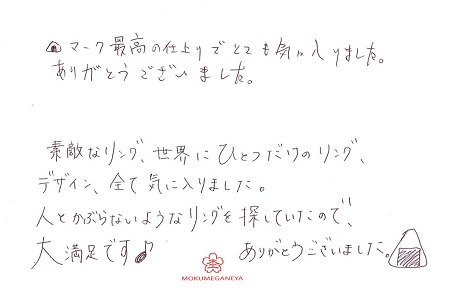 🍙マーク最高の仕上りでとても気に入りました。
ありがとうございました。
素敵なリング、世界にひとつだけのリング、
デザイン、全て気に入りました。
人とかぶらないようなリングを探していたので、
大満足です♪ ありがとうございました。
MOKUMEGANEYA